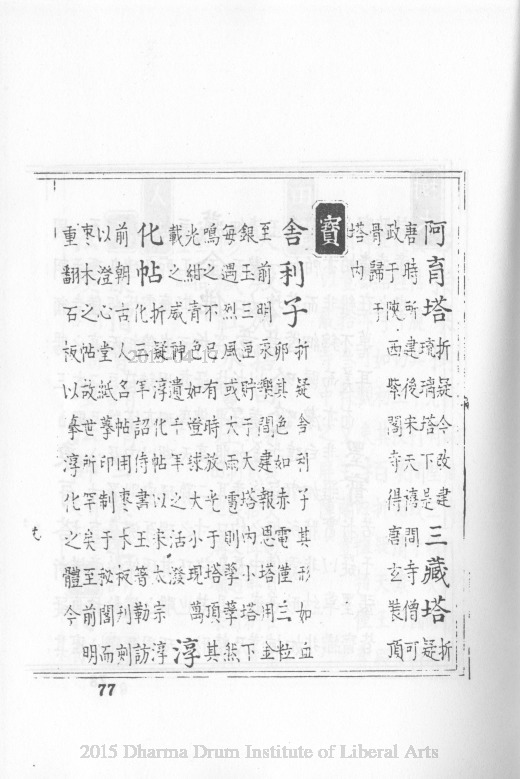 阿育塔 折疑今改建
琉璃塔下是 三藏塔 折
疑
唐時所建後宋天禧間寺僧可
政于陝西紫閣寺得唐玄奘頂
骨歸于
塔內
寶
舍利子 折疑舍利子其形如血
卵其色如赤電僅三粒
至前明永樂間建報恩塔用金
銀玉三豆貯于大塔內小塔下
每遇烈風或大雨電則孽孽然
鳴之不已有時放光于塔頂其
光紺青色如燈毬大小現萬
載之威神遺千年之活潑 淳
化帖 折疑淳化帖以宋太宗淳
化三年詔侍書王著勒訪
前朝古人名帖用棗木板刊刻
以澄心堂紙摹印制于秘閣而
棗木之帖故世所罕矣至前明
重翻石板以摹淳化之體今
九
77
2015 Dharma Drum Institute of Liberal Arts